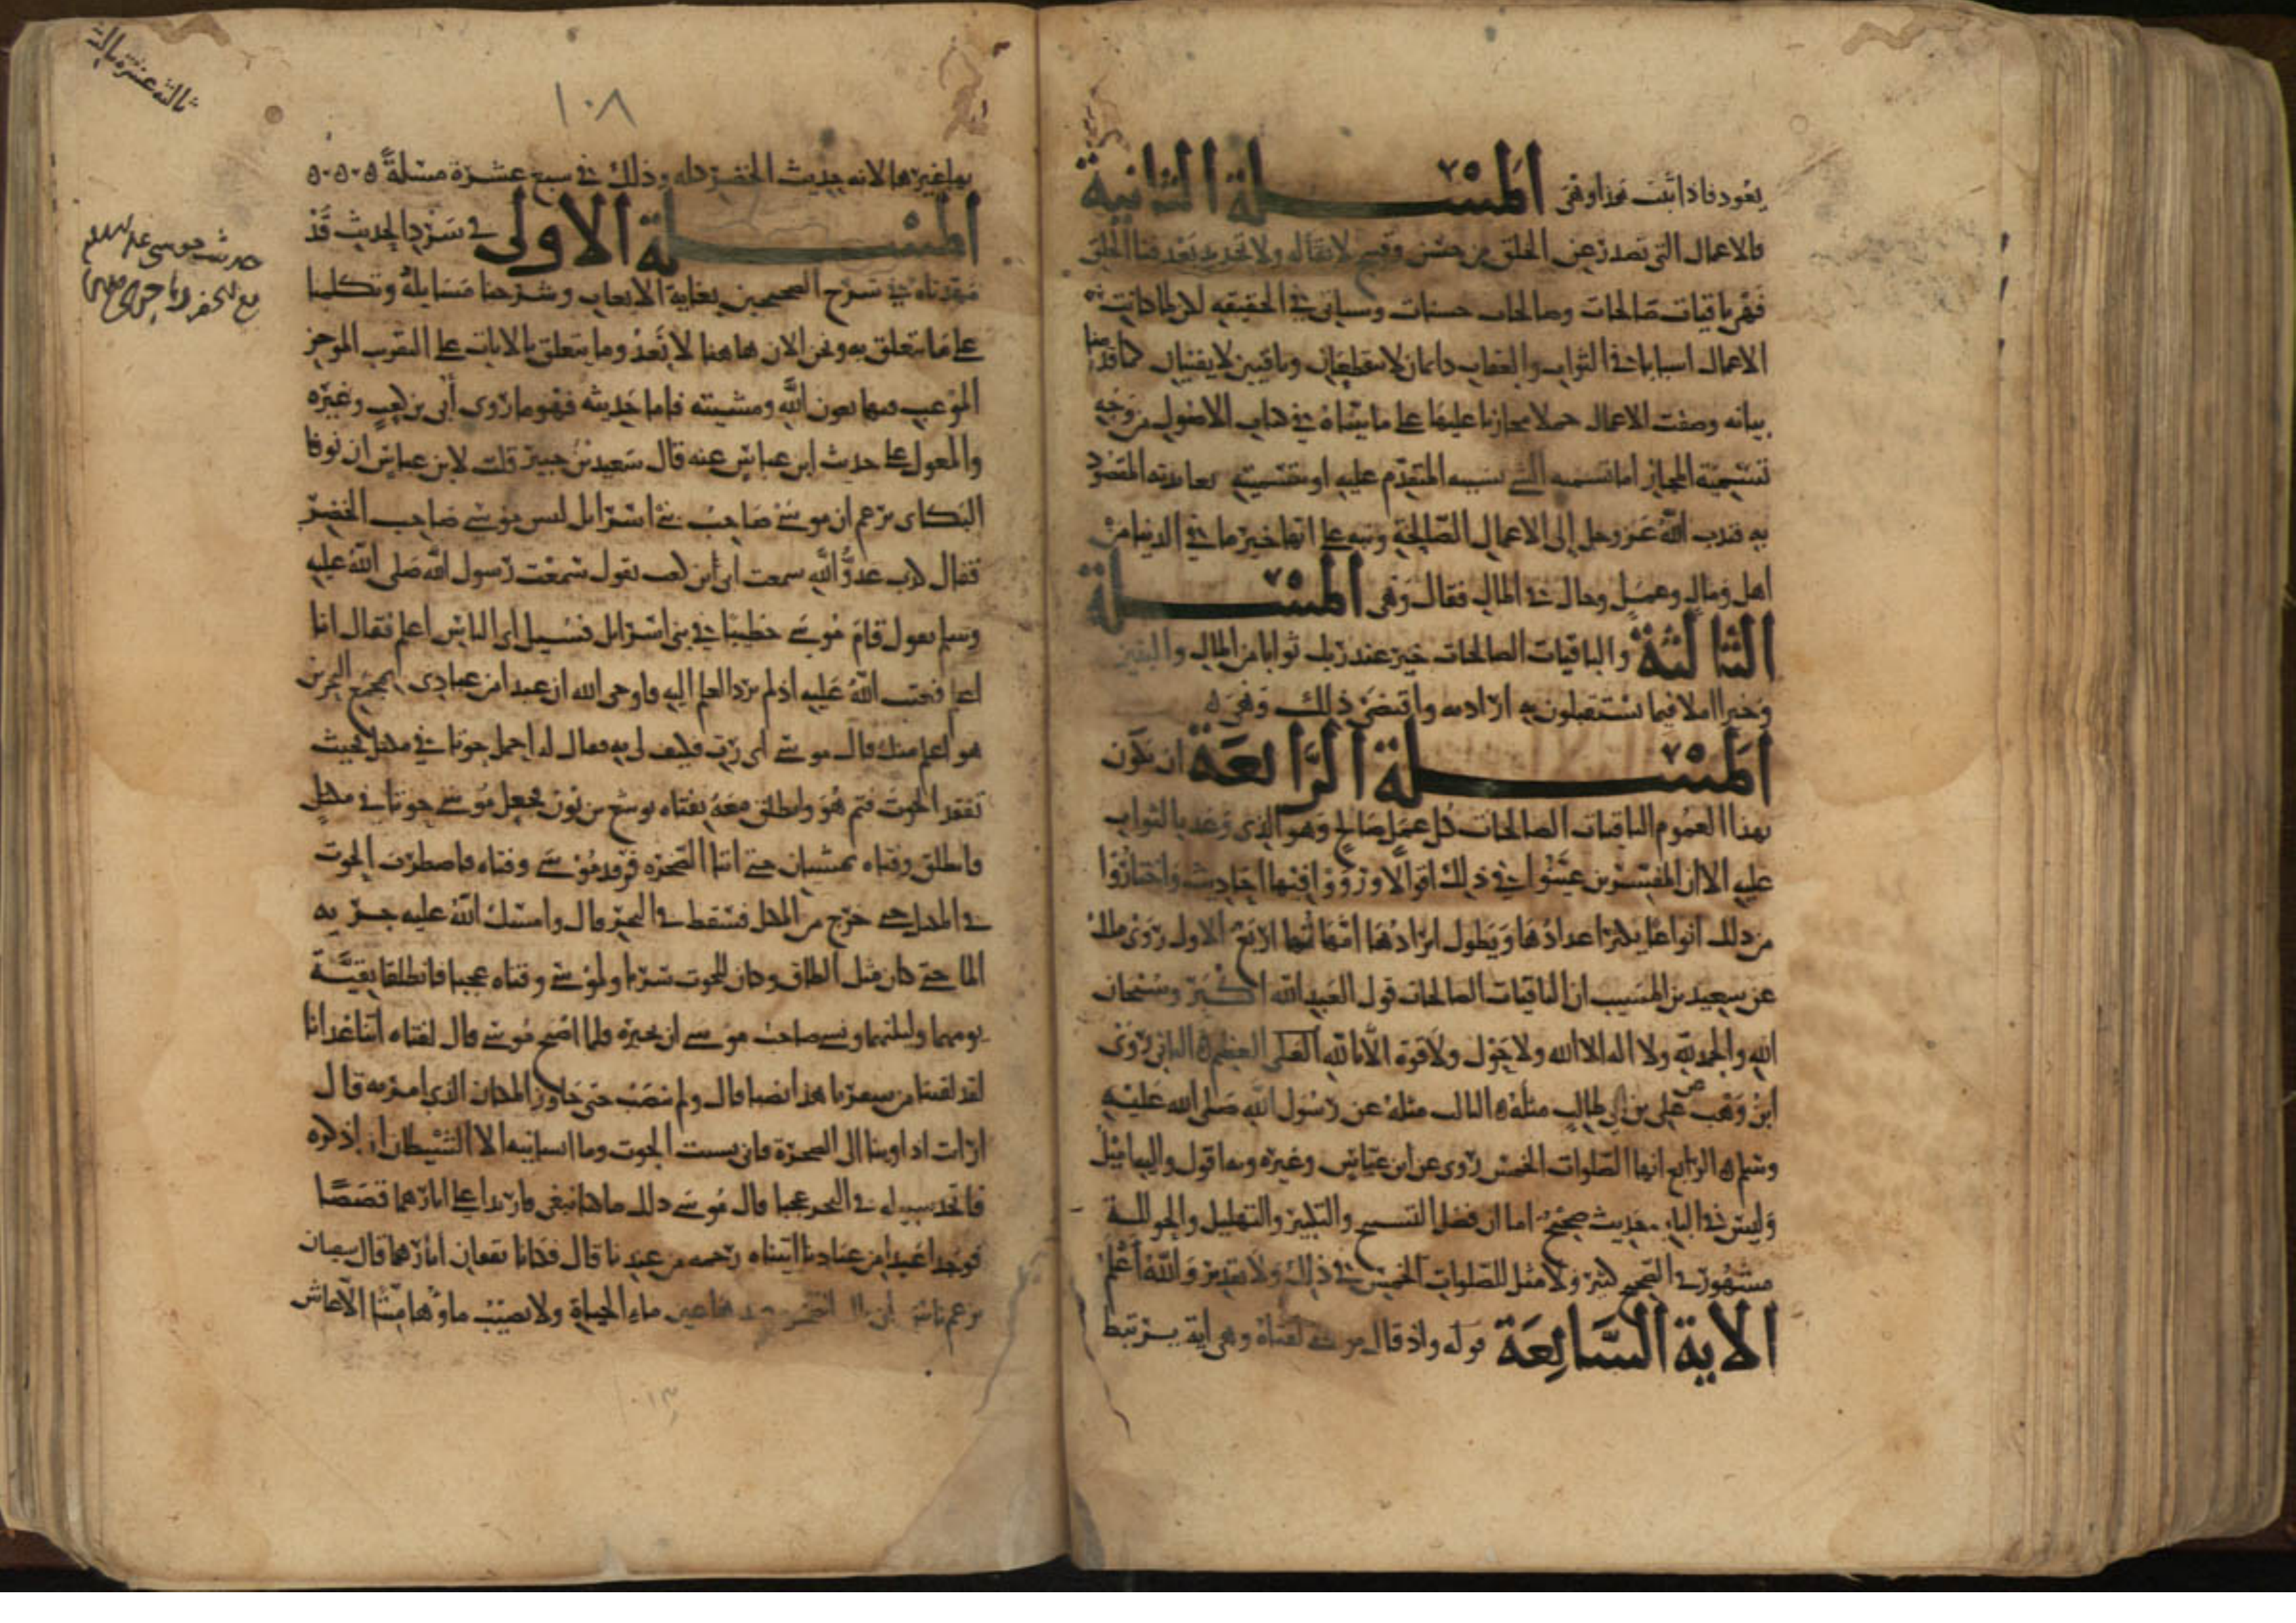 يعود فاذا ثبت هذا وهي المسلة الثانية
فالاعمال التي تصدر عن الخلق من حسن وقبيح لا بقا له ولا تجدد بعد فنا الخلق
فهي باقيات صالحات وصالحات حسنات وسياتي في الحقيقه لكن لما كانت هذه
الاعمال اسبابا في الثواب والعقاب دائمان لا ينقطعان وباقيين لا يفنيان كما قدمنا
بيانه وصفت الاعمال حملا مجازيا عليها على ما بيناه في كتاب الاصول من وجه
تسمية المجاز اما تسميه الشي بسببه المتقدم عليه او تسميته بفايدته المقصود
به فندب الله عز وجل إلى الاعمال الصالحة ونبه على انها خير ما في الدنيا من
اهل ومال وعمل وحال في المال فقال وهي المسلة
الثالثة والباقيات الصالحات خير عند ربك ثوابا من المال والبنين
وخير املا فيما يستقبلون به ارادته واقتضى ذلك وهي ه
المسلة الرابعة ان تكون
بهذا العموم الباقيات الصالحات كل عمل صالح وهو الذي وعد بالثواب
عليه الا ان المفسرين عينوا في ذلك اقوالا ورووا فيها احاديث واختاروا
من ذلك انواعا يكثر اعدادها ويطول ايرادها امهاتها اربع الاول روى ملك
عن سعيد بن المسيب ان الباقيات الصالحات قول العبد الله اكبر وسبحان
الله والحمد لله ولا اله الا الله ولا حول ولا قوة الا بالله العلي العظيم ه الثاني روى
ابن وهب عن علي بن ابي طالب مثله ه الثالث مثله عن رسول الله صلى الله عليه
وسلم ه الرابع انها الصلوات الخمس روى عن ابن عباس وغيره وبه اقول واليه اميل
وليس في الباب حديث صحيح اما ان فضل التسبيح والتكبير والتهليل والحوللة
مشهور في الصحيح كثير ولا مثل للصلوات الخمس في ذلك ولا تقدير والله اعلم
الاية السابعة قوله واذ قال موسى لفتاه وهي اية يرتبط
١٠٨
ثالثة عشرة ثالث
حديث موسى عليه السلام
مع الخضر
بها غيرها لانه حديث الخضر كله وذلك في سبع عشرة مسلة ه ه ه
المسلة الاولى في سرد الحديث قد
مهدناه في شرح الصحيحين بغاية الايعاب وشرحنا مسايله وتكلمنا
على ما يتعلق به ونحن الان هاهنا لا نعدو ما يتعلق بالايات على التقرب الموجز
الموعب فيها بعون الله ومشيته فاما حديثه فهو ما روى أبي بن كعب وغيره
والمعول على حديث ابن عباس عنه قال سعيد بن جبير قلت لابن عباس ان نوفا
البكاى يزعم ان موسى صاحب بني اسرايل ليس موسى صاحب الخضر
فقال كذب عدو الله سمعت أبي ابن كعب يقول سمعت رسول الله صلى الله عليه
وسلم يقول قام موسى خطيبا في بني اسرايل فسيل اى الناس اعلم فقال انا
اعلم فعتب الله عليه اذ لم يرد العلم اليه فاوحى الله ان عبدا من عبادي بمجمع البحرين
هو اعلم منك قال موسى اى رب فكيف لي به فقال له احمل حوتا في مكتل فحيث
تفقد الحوت فثم هو وانطلق معه بفتاه يوشع بن نون فجعل موسى حوتا في مكتل
فانطلق وفتاه يمشيان حتى اتيا الصخرة فرقد موسى وفتاه فاضطرب الحوت
في المكتل حتى خرج من المكتل فسقط في البحر قال وامسك الله عليه جرية
الما حتى كان مثل الطاق وكان للحوت سربا ولموسى وفتاه عجبا فانطلقا بقية
يومهما وليلتهما ونسي صاحب موسى ان يخبره فلما اصبح موسى قال لفتاه اتنا غدانا
لقد لقينا من سفرنا هذا نصبا قال ولم ينصب حتى جاوز المكان الذي امر به قال
ارات اذ اوينا الى الصخرة فاني نسيت الحوت وما انسانيه الا الشيطان ان اذكره
فاتخذ سبيله في البحر عجبا قال موسى ذلك ما كنا نبغي فارتدا على اثارهما قصصا
فوجدا عبدا من عبادنا اتيناه رحمه من عندنا قال فكانا يقصان اثارهما قال سفيان
يزعم ناس ان تلك الصخرة عندها عين ماء الحياة ولا يصيب ماؤها ميتا الا عاش